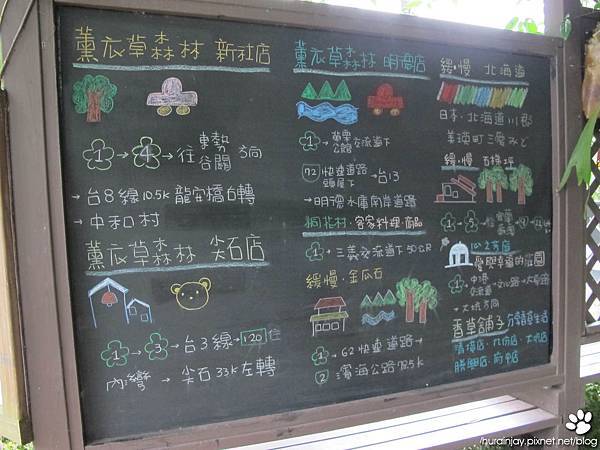 薰衣草森林 新社店
1 → 4 → 往 東勢 谷關 方向
→ 台8線 10.5K 龍安橋右轉
→ 中和村
薰衣草森林 尖石店
1 → 3 → 台3線 → 120 往
內灣 → 尖石 33K 左轉
薰衣草森林 明德店
1 → 苗栗 公館 交流道下
72 快速道路 頭屋下 → 台13
→ 明德水庫南岸道路
桐花村・客家料理・商品
1 → 三義交流道下 50公尺
緩慢・金瓜石
1 → 62 快速道路 →
2 濱海公路 72.5K
緩・慢 北海道
日本・北海道川郡
美瑛町三愛みど
緩・慢 石梯坪
1 → 5 →
心之芳庭
→ 大坑方向
香草舖子
清境店・九份店・大坑店
勝興店・府中店
/hurainjay.pixnet.net/blog